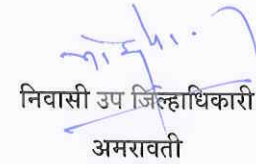 निवासी उप जिल्हाधिकारी
अमरावती